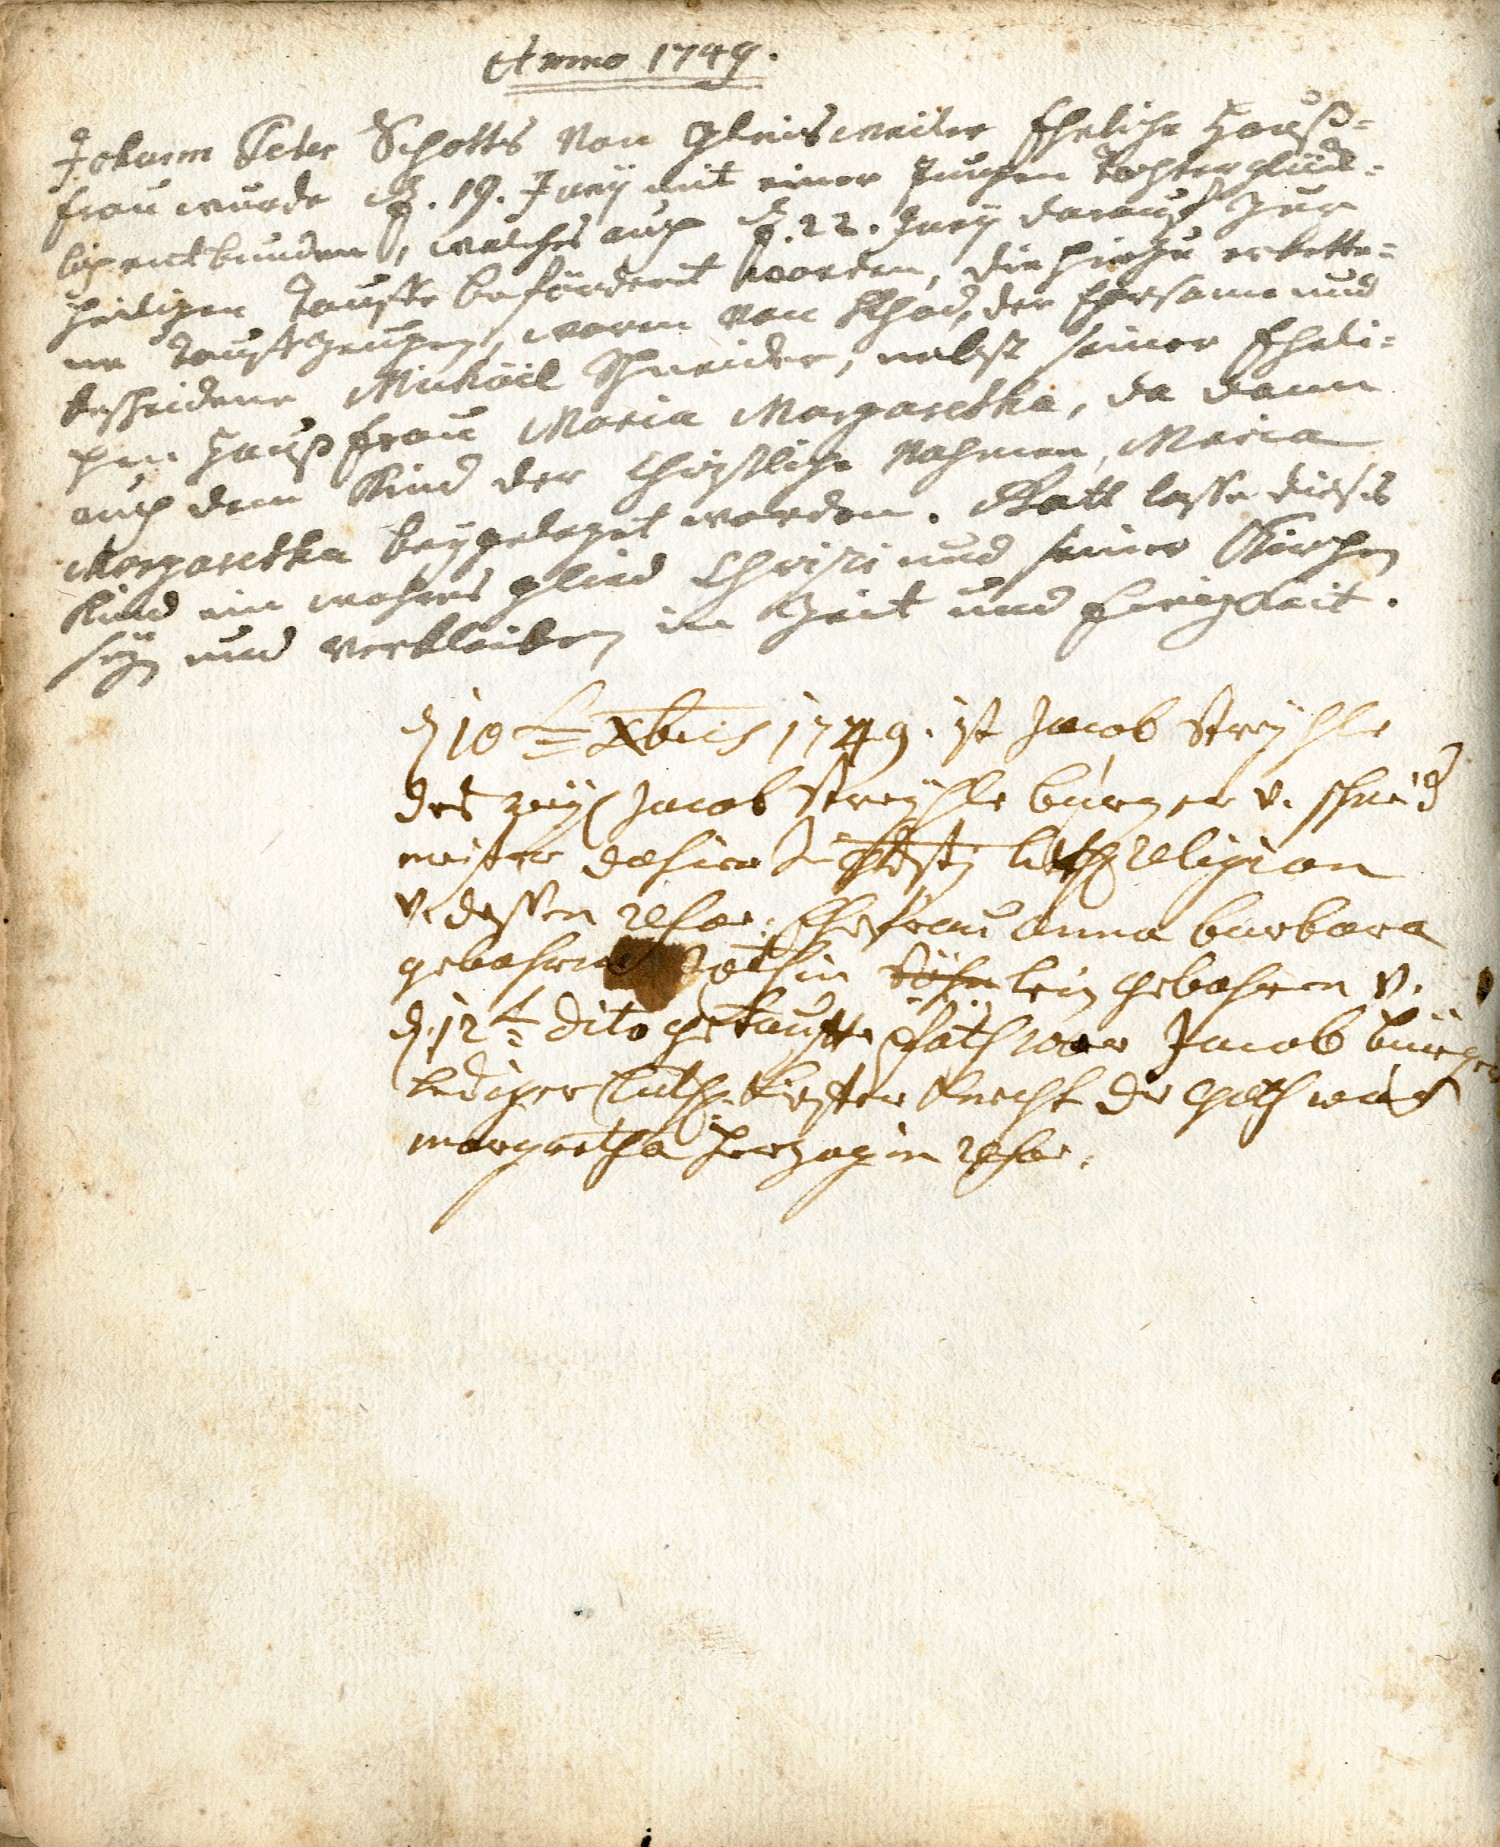 Anno 1749.
Johann Peter Schotts von Gleisweiler Eheliche Hauß-
frau wurde d. 19. Juny mit einer Jungen Tochter glück-
lich entbunden, welches auch d. 22. Juny darauf zur
heiligen Tauffe befördert worden, die hierzu erbette-
ne Tauffzeugen, waren von Rhod, der Ehrsame und
bescheidene Michäel Schneider, nebst seiner Eheli-
chen Haußfrau Maria Margaretha, da dann
auch dem Kind der Christliche Nahmen, Maria
Margaretha beygelegt worden. Gott lasse dieses
Kind ein wahres glied Christi und seiner Kirchen
seyn und verbleiben in Zeit und Ewigkeit.
d 10 t Xbris 1749. ist Jacob Streyhle
des Jacob Streyhle burger v. schneid
meister dahier luth religion
v. dessen refor: Ehefrau anna barbara
gebohrne söhnlein gebohren v.
d. 12 t dito getaufft pfath war Jacob bürger
lediger luth. Knecht die goth war
margretha Herzogin refor: